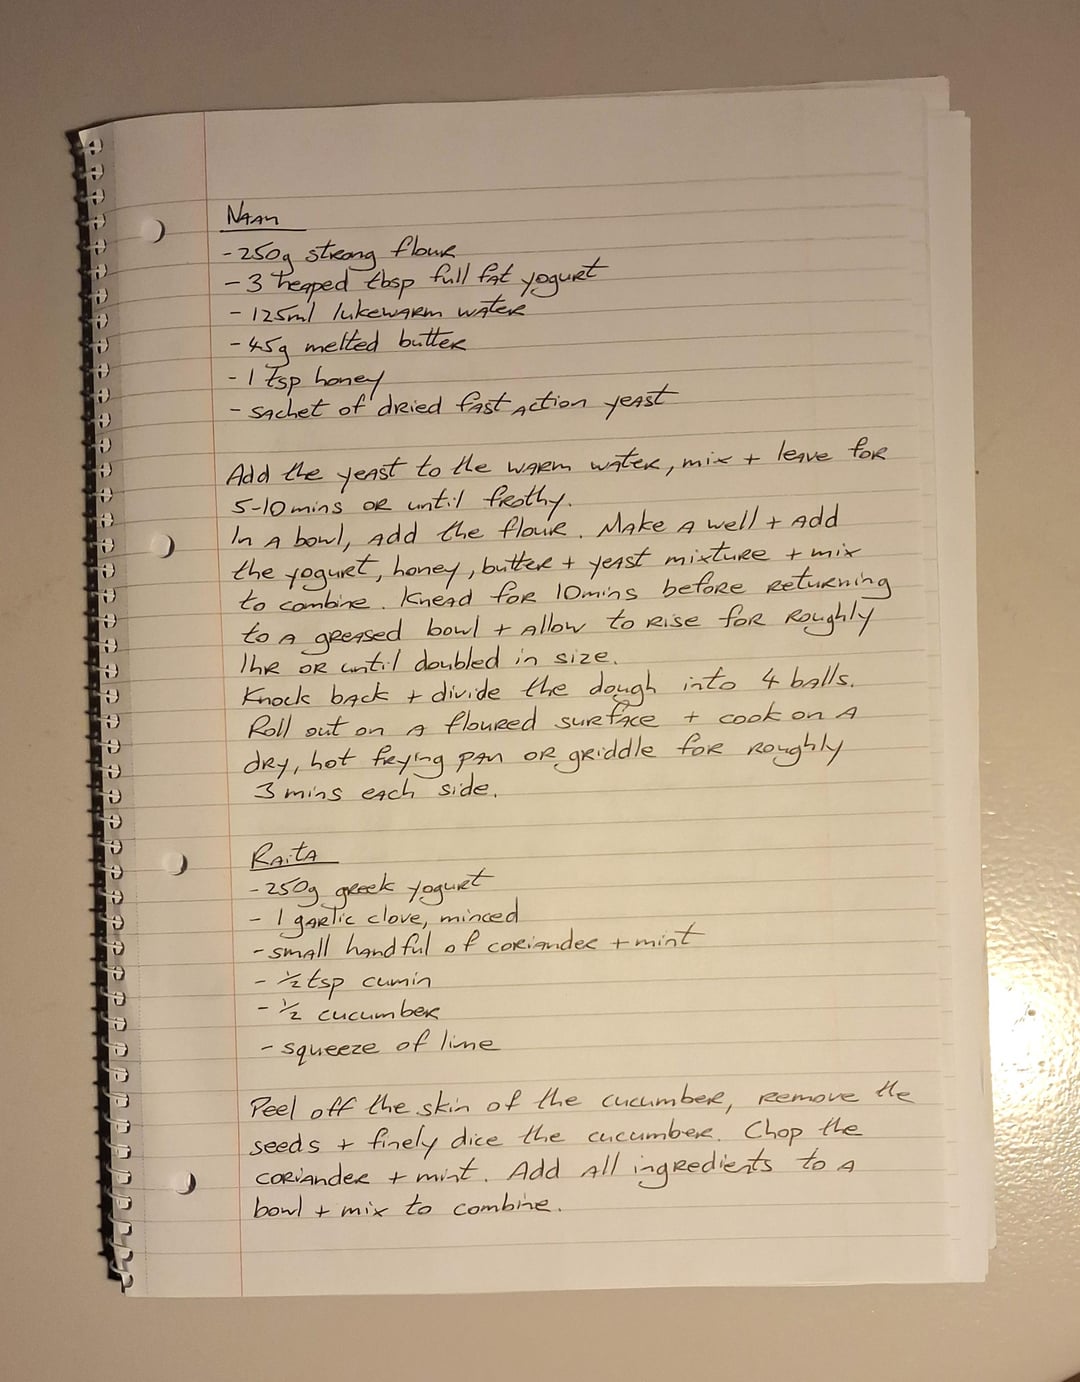 Naan
- 250g strong flour
- 3 heaped tbsp full fat yogurt
- 125ml lukewarm water
- 45g melted butter
- 1 tsp honey
- sachet of dried fast action yeast
Add the yeast to the warm water, mix + leave for
5-10mins or until frothy.
In a bowl, add the flour. Make a well + add
the yogurt, honey, butter + yeast mixture + mix
to combine. Knead for 10mins before returning
to a greased bowl + allow to rise for roughly
1hr or until doubled in size.
Knock back + divide the dough into 4 balls.
Roll out on a floured surface + cook on a
dry, hot frying pan or griddle for roughly
3 mins each side.
Raita
- 250g greek yogurt
- 1 garlic clove, minced
- small handful of coriander + mint
- ½ tsp cumin
- ½ cucumber
- squeeze of lime
Peel off the skin of the cucumber, remove the
seeds + finely dice the cucumber. Chop the
coriander + mint. Add all ingredients to a
bowl + mix to combine.